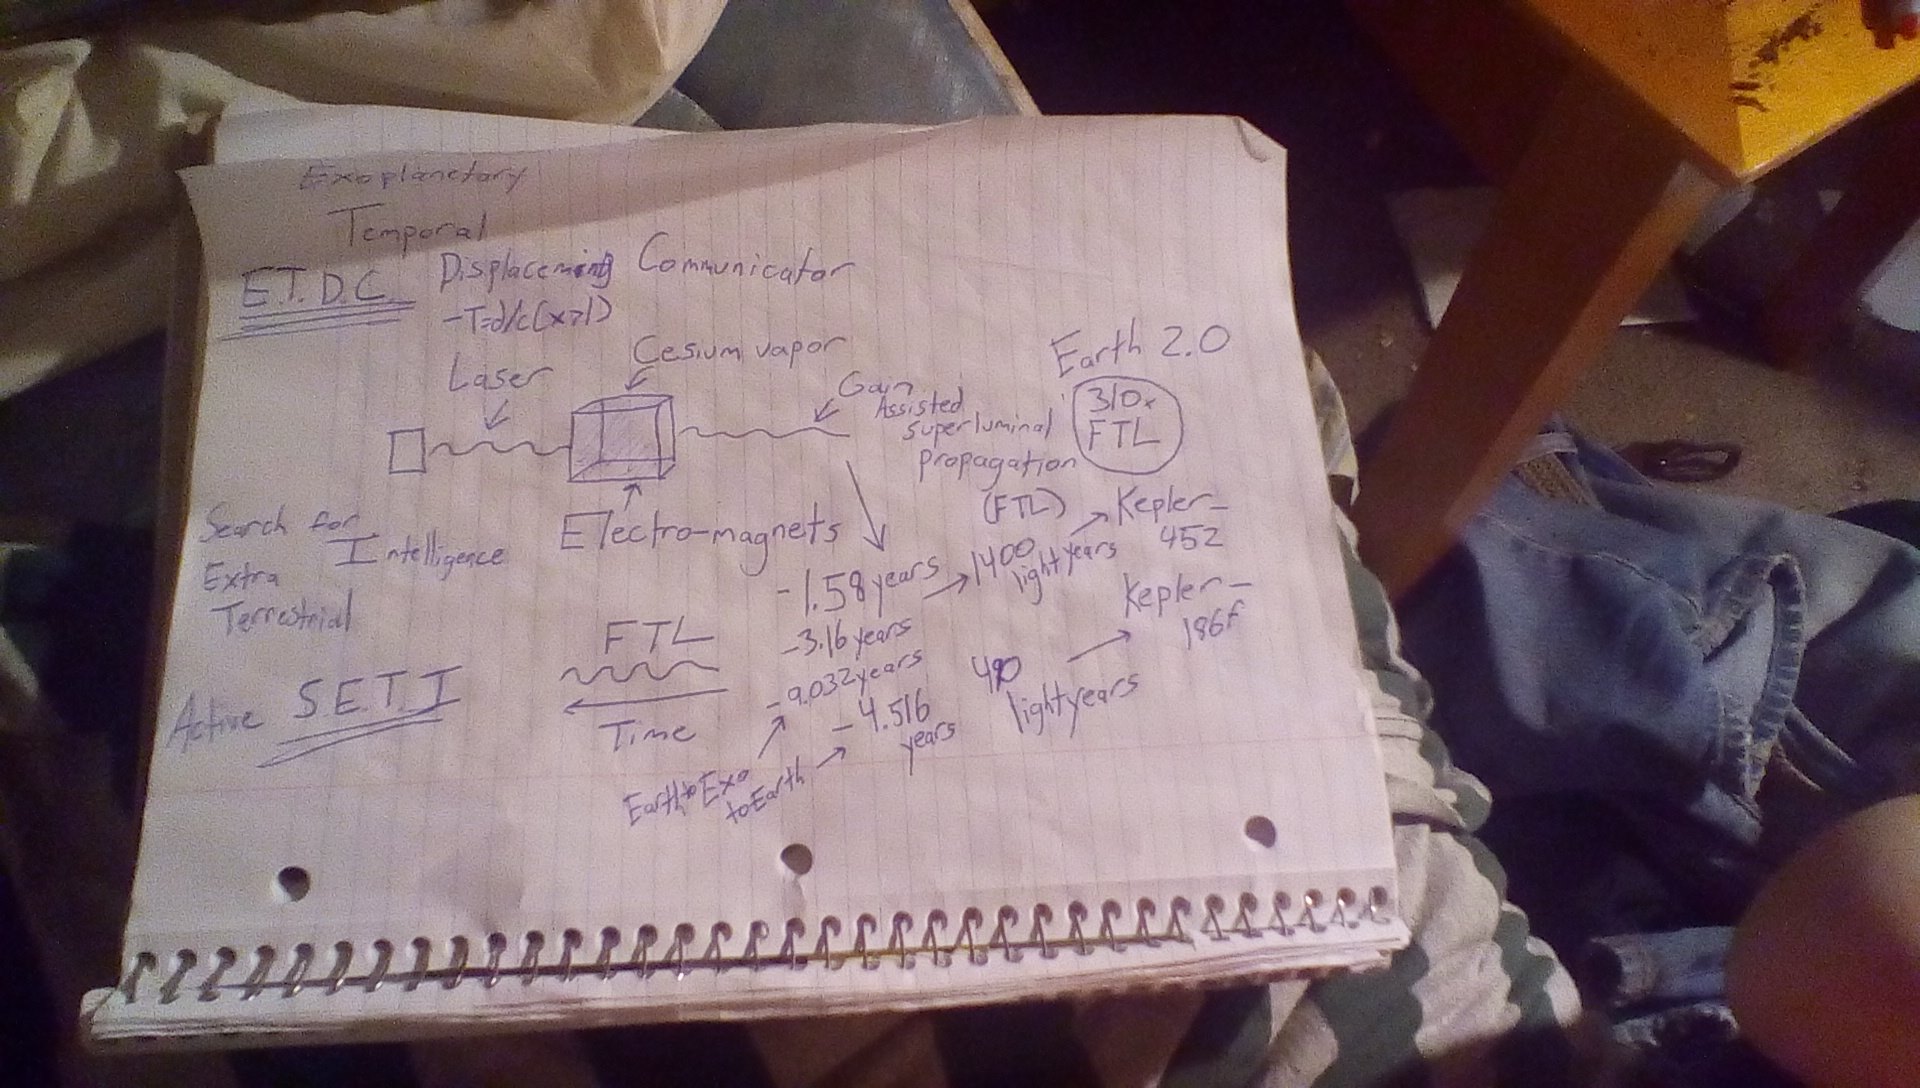 Exoplanetary
Temporal
E.T.D.C. Displacement Communicator
-T=d/c(x>1)
Laser
Cesium vapor
Gain
Assisted
superluminal
propagation
(FTL)
Earth 2.0
310x
FTL
Electro-magnets
Search for
Intelligence
Extra
Terrestrial
Active S.E.T.I
FTL
Time
-1.58 years
-3.16 years
-9.032 years
-4.516
years
1400
light years
Kepler-
452
490
light years
Kepler-
186f
Earth to Exo
to Earth